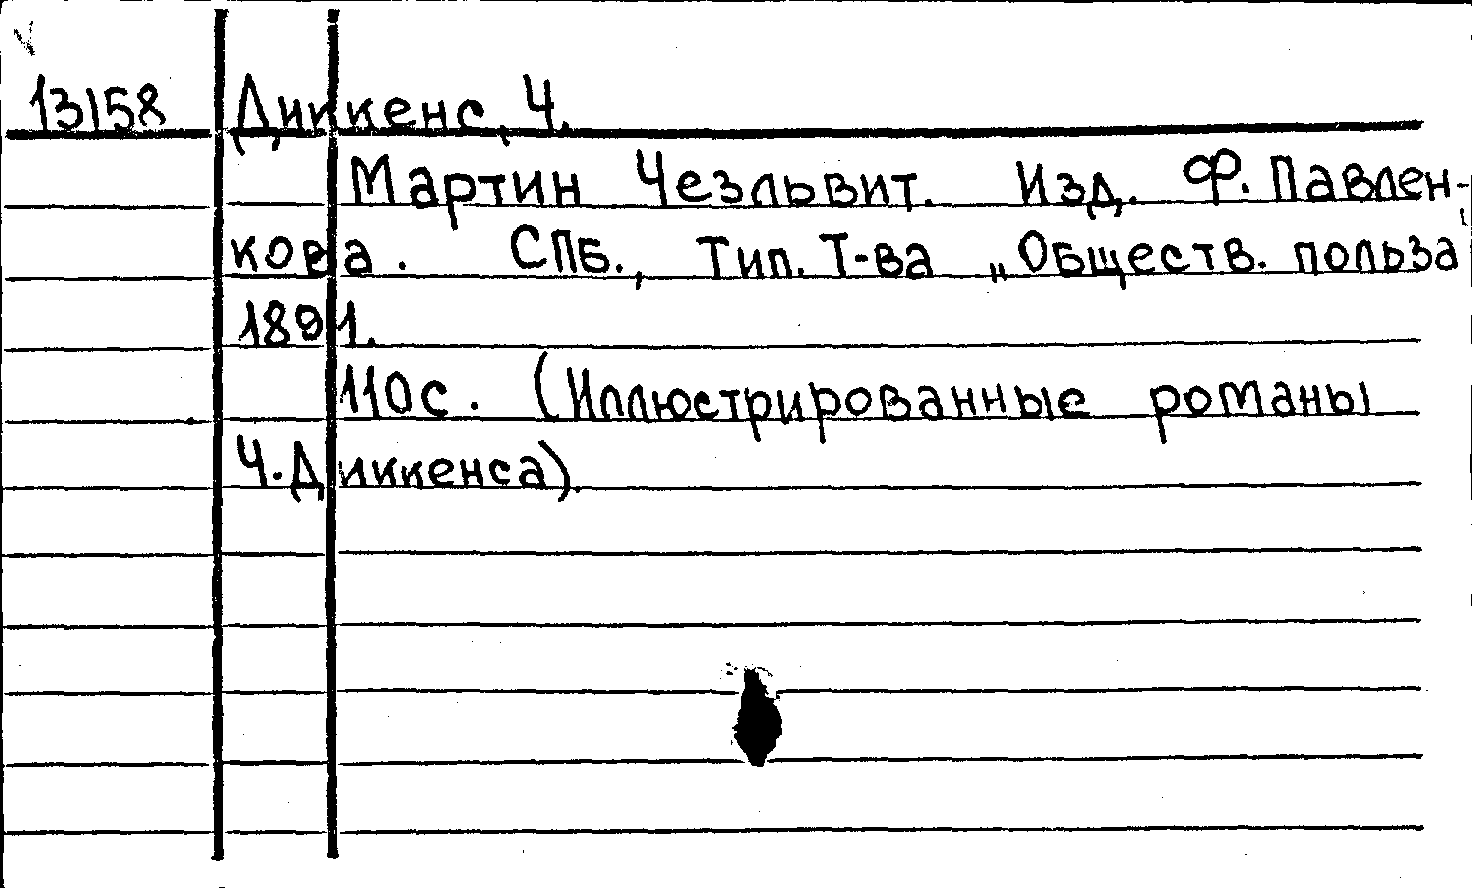 13158 Диккенс, Ч.
Мартин Чезльвит. Изд. Ф. Павлен-
кова. СПБ., Тип. Т-ва „Обществ. польза
1891.
110с. (Иллюстрированные романы
Ч. Диккенса).